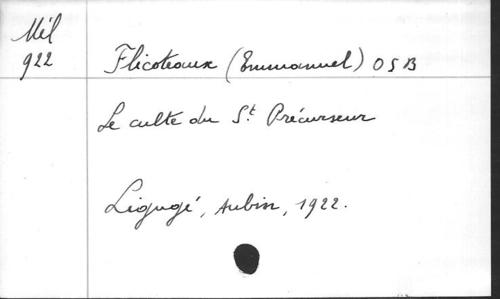 Mél
922
Flicoteaux (Emmanuel) OSB
Le culte du St. Précurseur
Ligugé, Aubin, 1922.